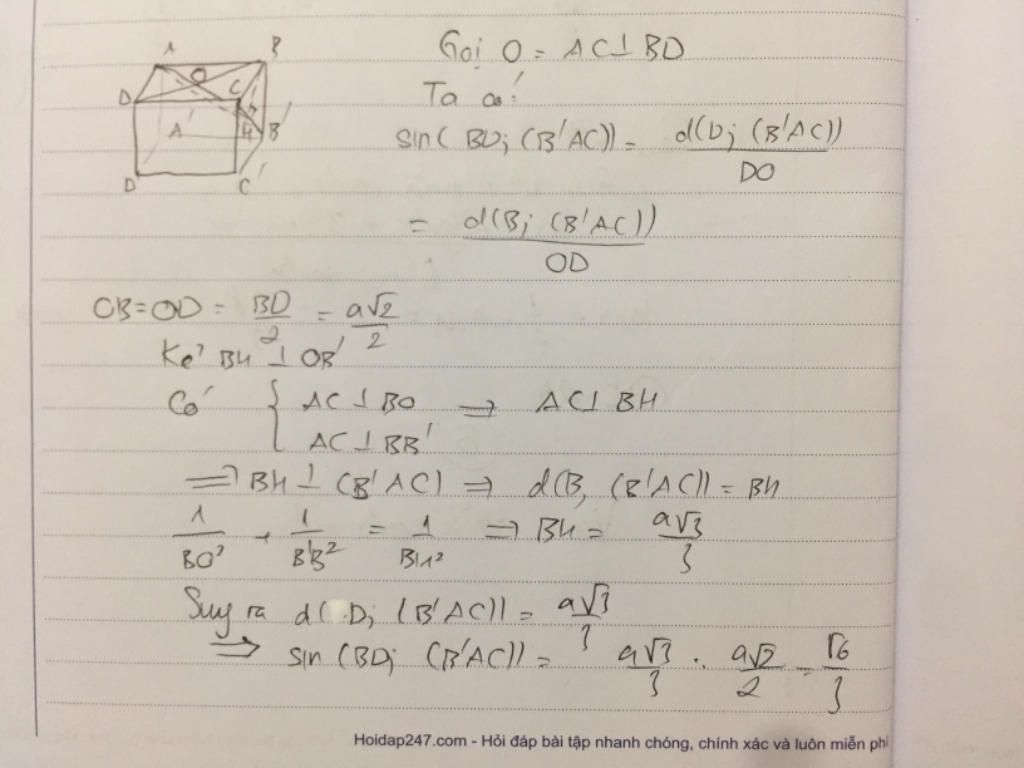 A B
D O C
A' H B'
D' C'
Gọi O = AC ⊥ BD
Ta có:
sin( BD; (B'AC)) = d(D; (B'AC)) / DO
= d(B; (B'AC)) / OD
OB = OD = BD/2 = a√2/2
Kẻ BH ⊥ OB'
Có { AC ⊥ BO ⇒ AC ⊥ BH
AC ⊥ BB'
⇒ BH ⊥ (B'AC) ⇒ d(B, (B'AC)) = BH
1/BO² + 1/B'B² = 1/BH² ⇒ BH = a√3/3
Suy ra d( D; (B'AC)) = a√3/3
⇒ sin (BD; (B'AC)) = a√3/3 : a√2/2 = √6/3
Hoidap247.com - Hỏi đáp bài tập nhanh chóng, chính xác và luôn miễn phí